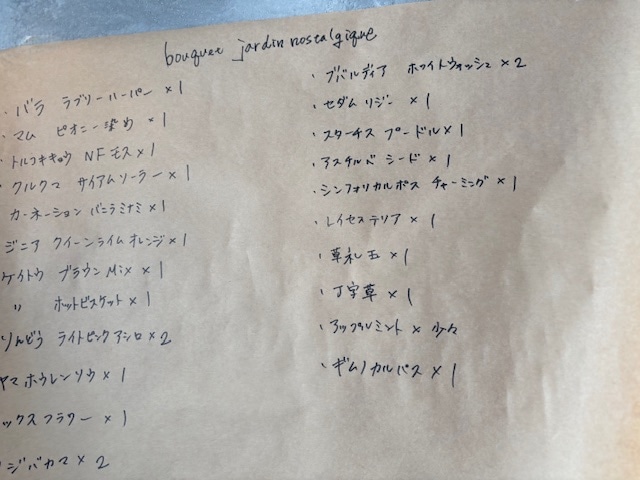 bouquet jardin nostalgique
・バラ ラブリーハーパー ×1
・マム ピオニー染め ×1
・トルコキキョウ NFモス×1
・クルクマ サイアムソーラー×1
カーネーション バニラミナミ×1
ジニア クイーンライムオレンジ×1
ケイトウ ブラウンMix ×1
〃 ホットビスケット×1
りんどう ライトピンクアシロ×2
ヤマホウレンソウ×1
ックスフラワー×1
ジバカマ×2
・ブバルディア ホワイトウォッシュ×2
・セダム リジー ×1
・スターチス プードル×1
・アスチルベ シード×1
・シンフォリカルポス チャーミング×1
・レイセステリア×1
・草礼玉×1
・丁字草×1
・アップルミント×少々
・ギムノカルパス×1